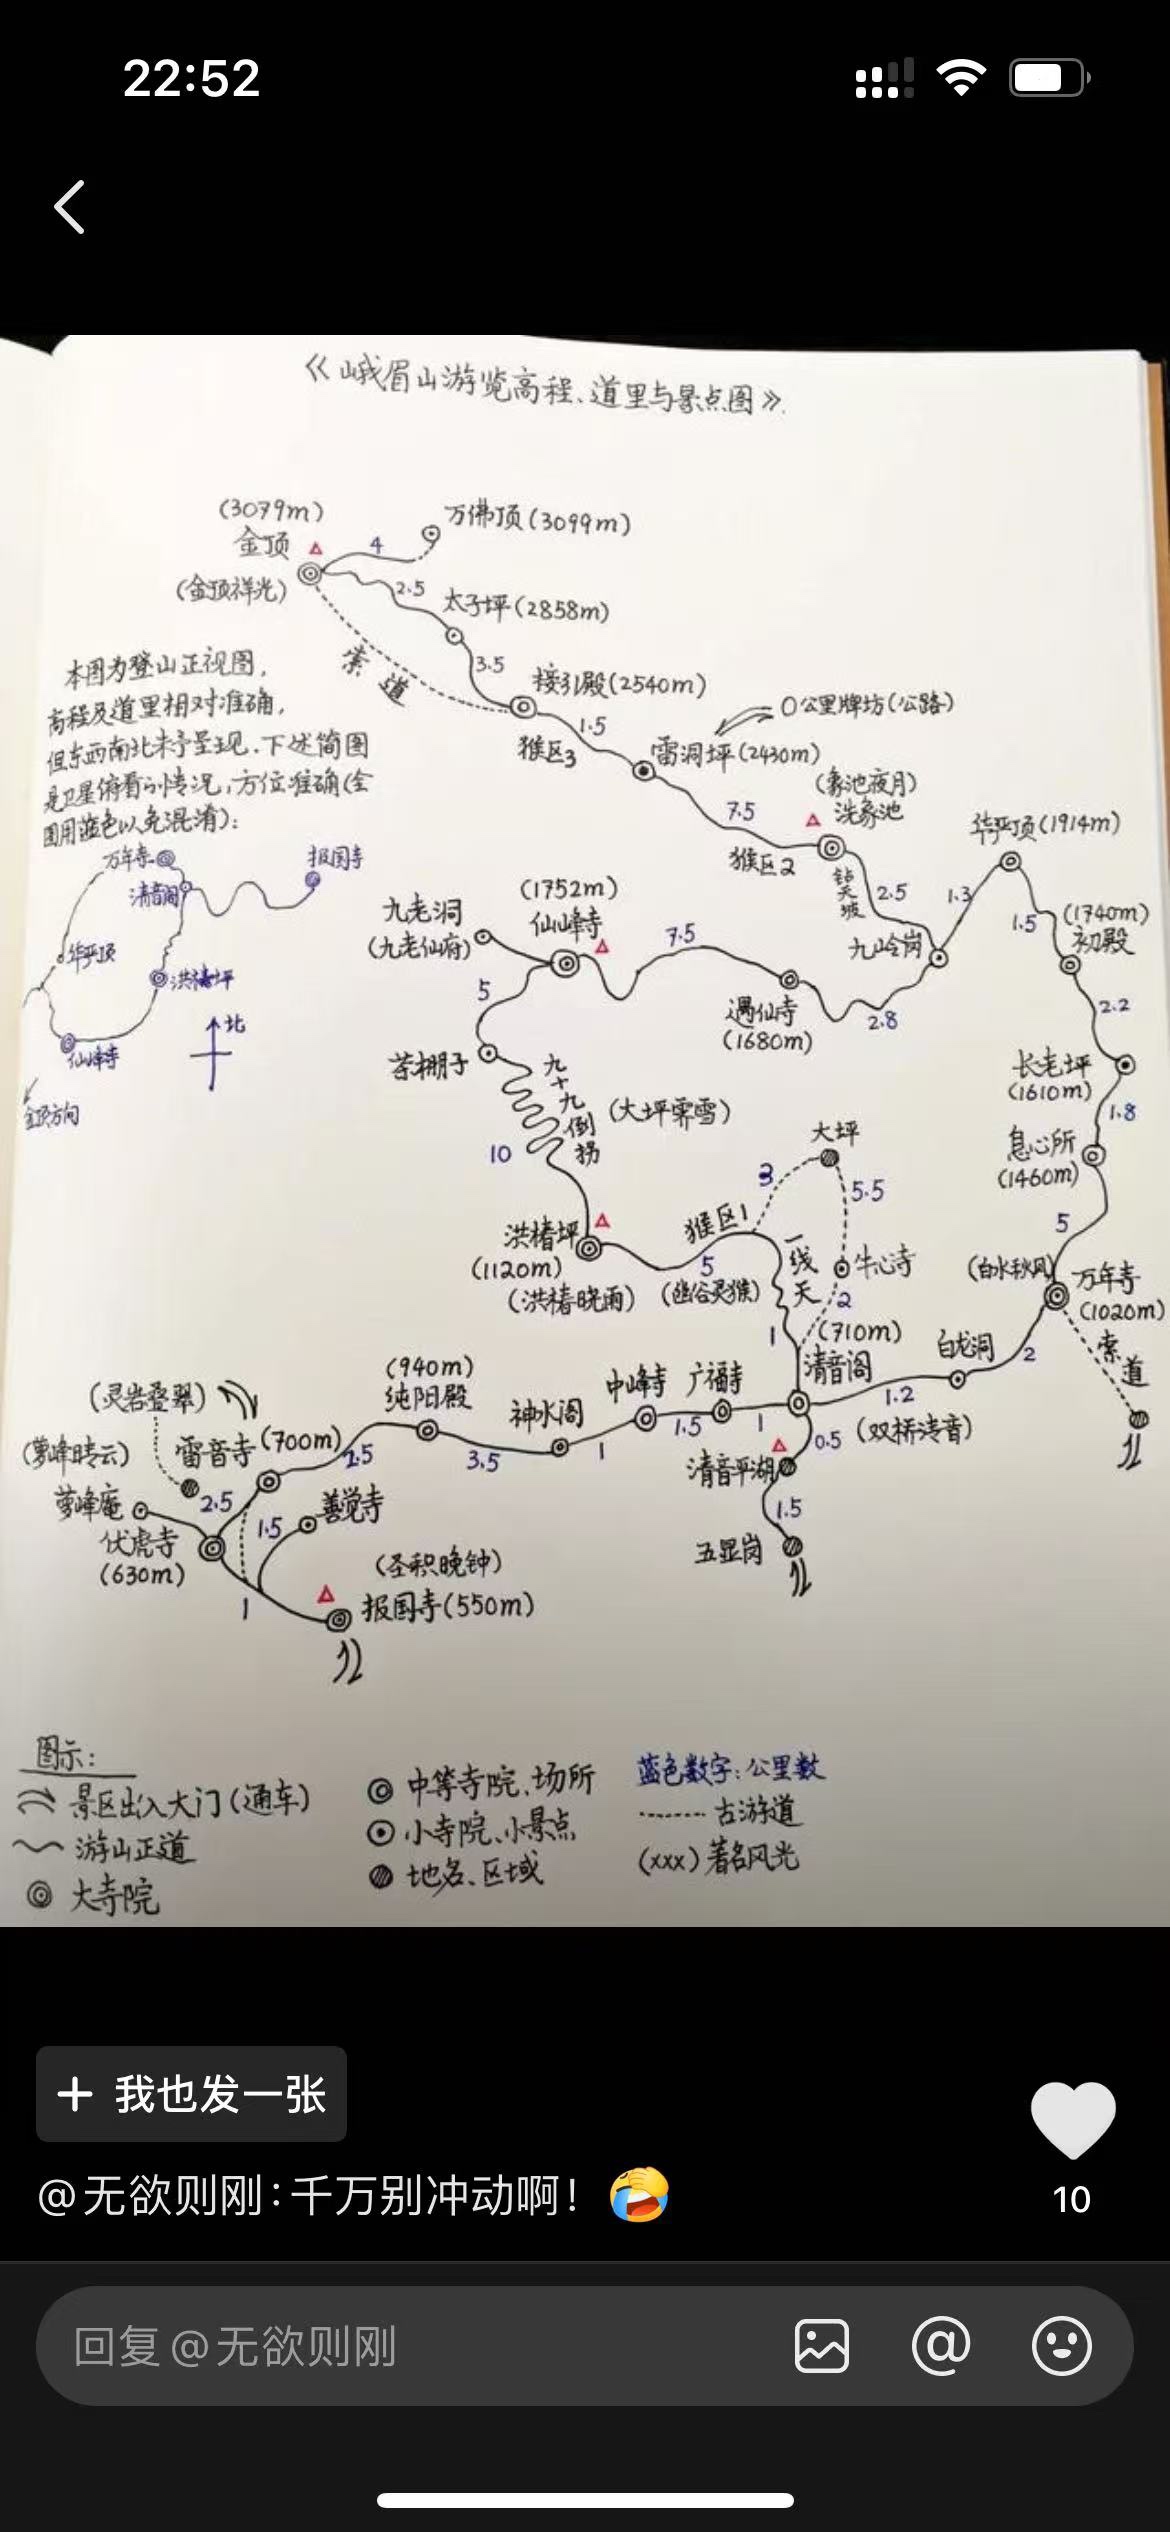 22:52
《峨眉山游览高程、道里与景点图》
(3079m)
金顶
(金顶祥光)
4
万佛顶(3099m)
2.5
太子坪(2858m)
索道
3.5
接引殿(2540m)
1.5
猴区3
0公里牌坊(公路)
雷洞坪(2430m)
7.5
(象池夜月)
洗象池
猴区2
钻天坡
2.5
九岭岗
1.3
华严顶(1914m)
1.5
(1740m)
初殿
2.2
长老坪
(1610m)
1.8
息心所
(1460m)
5
(白水秋风)
万年寺
(1020m)
索道
2
白龙洞
1.2
本图为登山正视图,
高程及道里相对准确,
但东西南北未予呈现.下述简图
是卫星俯看的情况,方位准确(全
图用蓝色以免混淆):
万年寺
清音阁
报国寺
华严顶
洪椿坪
北
仙峰寺
金顶方向
九老洞
(九老仙府)
(1752m)
仙峰寺
7.5
遇仙寺
(1680m)
2.8
5
茶棚子
九十九倒拐
(大坪霁雪)
10
洪椿坪
(1120m)
(洪椿晓雨)
猴区1
5
(幽谷灵猴)
一线天
1
大坪
3
5.5
牛心寺
2
(710m)
清音阁
(双桥清音)
0.5
清音平湖
1.5
五显岗
1
广福寺
1.5
中峰寺
1
神水阁
3.5
(940m)
纯阳殿
2.5
(灵岩叠翠)
雷音寺(700m)
(萝峰晴云)
萝峰庵
2.5
伏虎寺
(630m)
1.5
善觉寺
1
(圣积晚钟)
报国寺(550m)
图示:
景区出入大门(通车)
游山正道
大寺院
中等寺院、场所
小寺院、小景点
地名、区域
蓝色数字:公里数
古游道
(xxx)著名风光
+ 我也发一张
@无欲则刚:千万别冲动啊!🤣
10
回复@无欲则刚